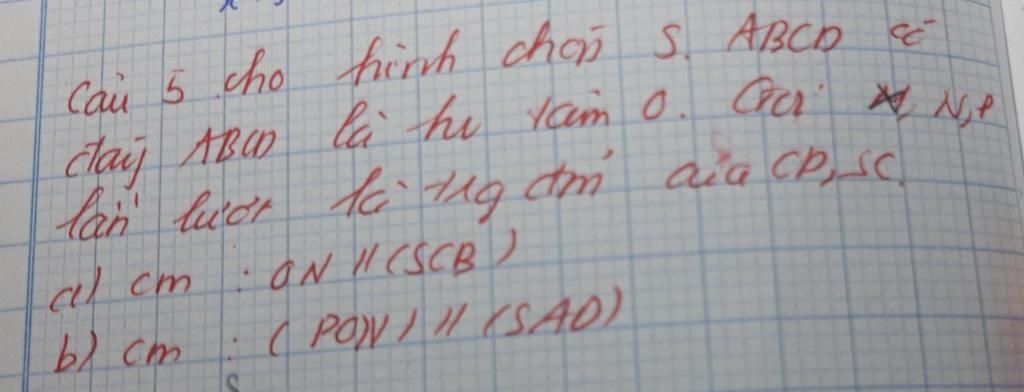 Câu 5 cho hình chóp S. ABCD có
đáy ABCD là hv tâm O. Gọi N, P
lần lượt là trg điểm của CD, SC.
a) cm : ON // (SCB)
b) cm : (PON) // (SAD)